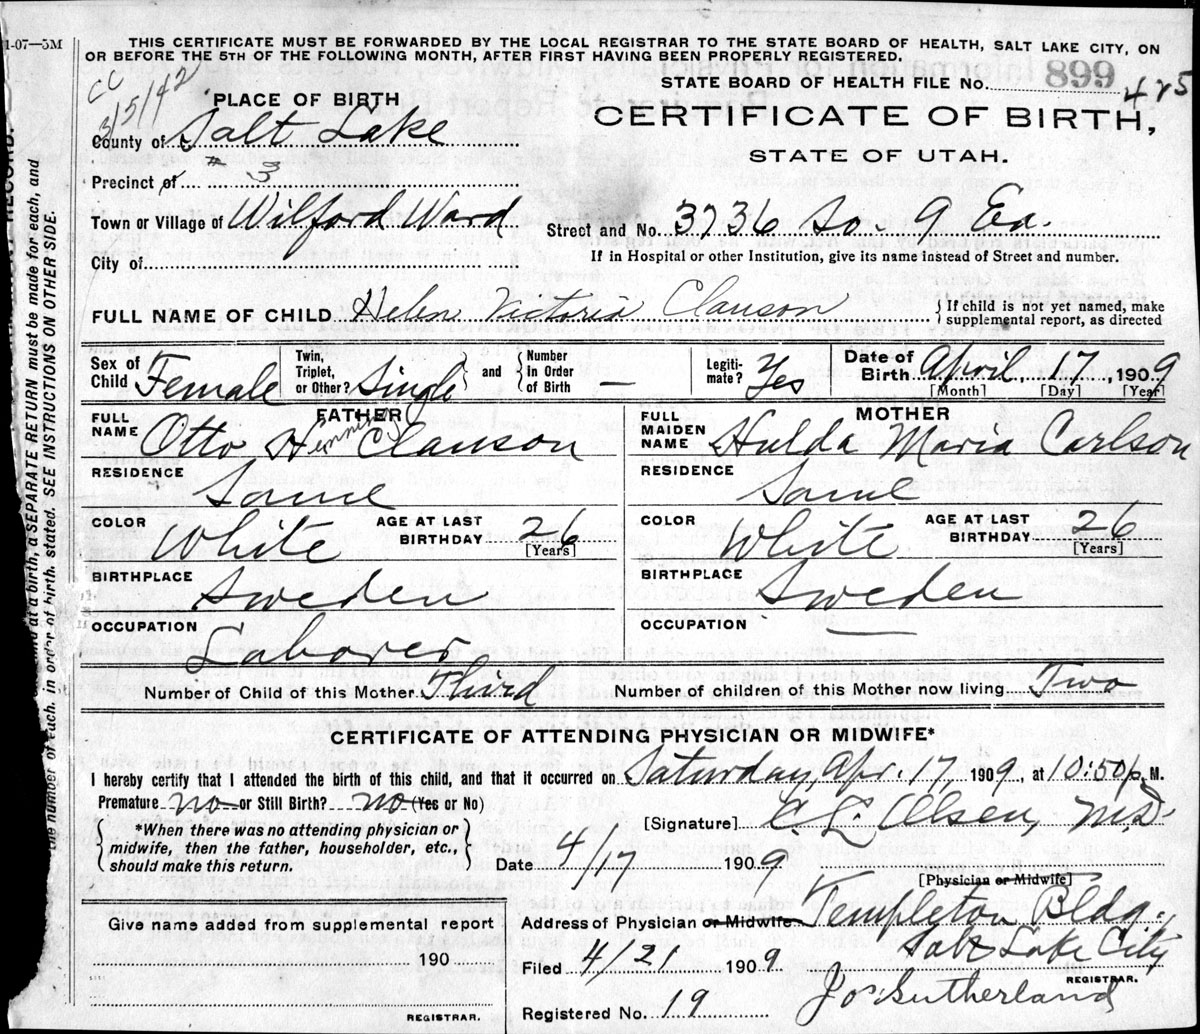 1-07—5M
THIS CERTIFICATE MUST BE FORWARDED BY THE LOCAL REGISTRAR TO THE STATE BOARD OF HEALTH, SALT LAKE CITY, ON
OR BEFORE THE 5TH OF THE FOLLOWING MONTH, AFTER FIRST HAVING BEEN PROPERLY REGISTERED.
CC
3/5/42
STATE BOARD OF HEALTH FILE No. 899
425
PLACE OF BIRTH
CERTIFICATE OF BIRTH,
STATE OF UTAH.
County of Salt Lake
Precinct of # 3
Town or Village of Wilford Ward
Street and No. 3736 So. 9 Ea.
City of
If in Hospital or other Institution, give its name instead of Street and number.
FULL NAME OF CHILD Helen Victoria Clauson
{If child is not yet named, make
supplemental report, as directed
Sex of Child Female
Twin, Triplet, or Other? Single
and
Number In Order of Birth —
Legiti-mate? Yes
Date of Birth April, 17, 1909
[Month] [Day] [Year]
FATHER
FULL NAME Otto Henning Clauson
RESIDENCE Same
COLOR White
AGE AT LAST BIRTHDAY 26
[Years]
BIRTHPLACE Sweden
OCCUPATION Laborer
MOTHER
FULL MAIDEN NAME Hulda Maria Carlson
RESIDENCE Same
COLOR White
AGE AT LAST BIRTHDAY 26
[Years]
BIRTHPLACE Sweden
OCCUPATION —
Number of Child of this Mother Third
Number of children of this Mother now living Two
CERTIFICATE OF ATTENDING PHYSICIAN OR MIDWIFE*
I hereby certify that I attended the birth of this child, and that it occurred on Saturday, Apr. 17, 1909, at 10:50 p. M.
Premature no or Still Birth? no (Yes or No)
*When there was no attending physician or
midwife, then the father, householder, etc.,
should make this return.
[Signature] C. L. Olsen, M.D.
Date 4/17 1909
[Physician or Midwife]
Give name added from supplemental report
190
REGISTRAR.
Address of Physician or Midwife Templeton Bldg.,
Salt Lake City
Filed 4/21 1909
Jos Sutherland
REGISTRAR.
Registered No. 19
at a birth, a SEPARATE RETURN must be made for each, and
the number of each, in order of birth, stated. SEE INSTRUCTIONS ON OTHER SIDE.
RECORD.